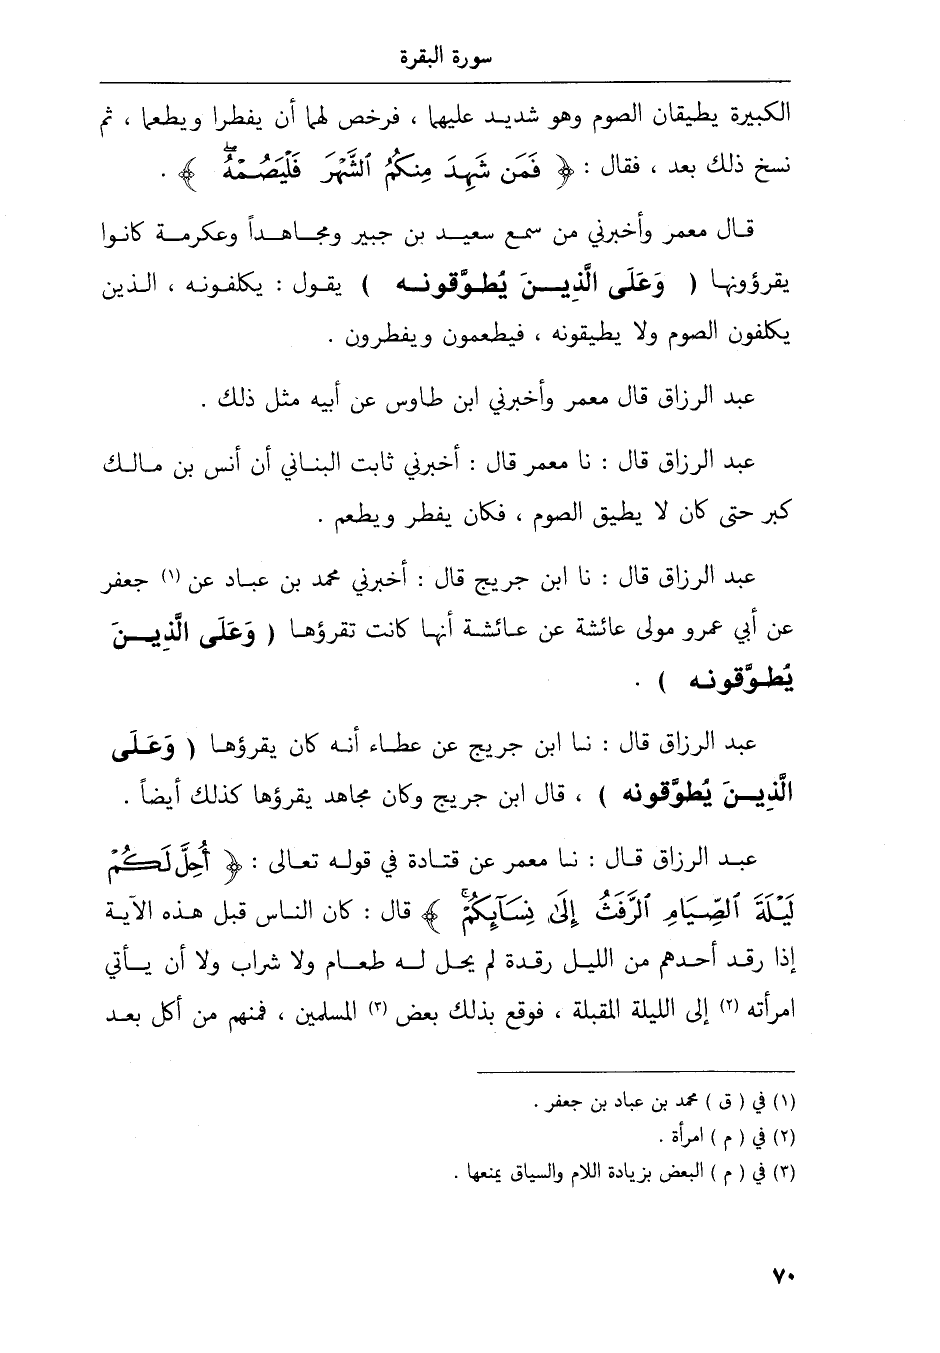 سورة البقرة
الكبيرة يطيقان الصوم وهو شديد عليهما ، فرخص لهما أن يفطرا ويطعما ، ثم
نسخ ذلك بعد ، فقال : ﴿ فَمَن شَهِدَ مِنكُمُ ٱلشَّهْرَ فَلْيَصُمْهُ ۖ ﴾ .
قال معمر وأخبرني من سمع سعيد بن جبير ومجاهداً وعكرمة كانوا
يقرؤونها ( وَعَلَى الَّذِينَ يُطوَّقونه ) يقول : يكلفونه ، الذين
يكلفون الصوم ولا يطيقونه ، فيطعمون ويفطرون .
عبد الرزاق قال معمر وأخبرني ابن طاوس عن أبيه مثل ذلك .
عبد الرزاق قال : نا معمر قال : أخبرني ثابت البناني أن أنس بن مالك
كبر حتى كان لا يطيق الصوم ، فكان يفطر ويطعم .
عبد الرزاق قال : نا ابن جريج قال : أخبرني محمد بن عباد عن (١) جعفر
عن أبي عمرو مولى عائشة عن عائشة أنها كانت تقرؤها ( وَعَلَى الَّذِينَ
يُطوَّقونه ) .
عبد الرزاق قال : نا ابن جريج عن عطاء أنه كان يقرؤها ( وَعَلَى
الَّذِينَ يُطوَّقونه ) ، قال ابن جريج وكان مجاهد يقرؤها كذلك أيضاً .
عبد الرزاق قال : نا معمر عن قتادة في قوله تعالى : ﴿ أُحِلَّ لَكُمْ
لَيْلَةَ ٱلصِّيَامِ ٱلرَّفَثُ إِلَىٰ نِسَآئِكُمْ ۚ ﴾ قال : كان الناس قبل هذه الآية
إذا رقد أحدهم من الليل رقدة لم يحل له طعام ولا شراب ولا أن يأتي
امرأته (٢) إلى الليلة المقبلة ، فوقع بذلك بعض (٣) المسلمين ، فمنهم من أكل بعد
(١) في ( ق ) محمد بن عباد بن جعفر .
(٢) في ( م ) امرأة .
(٣) في ( م ) البعض بزيادة اللام والسياق يمنعها .
٧٠